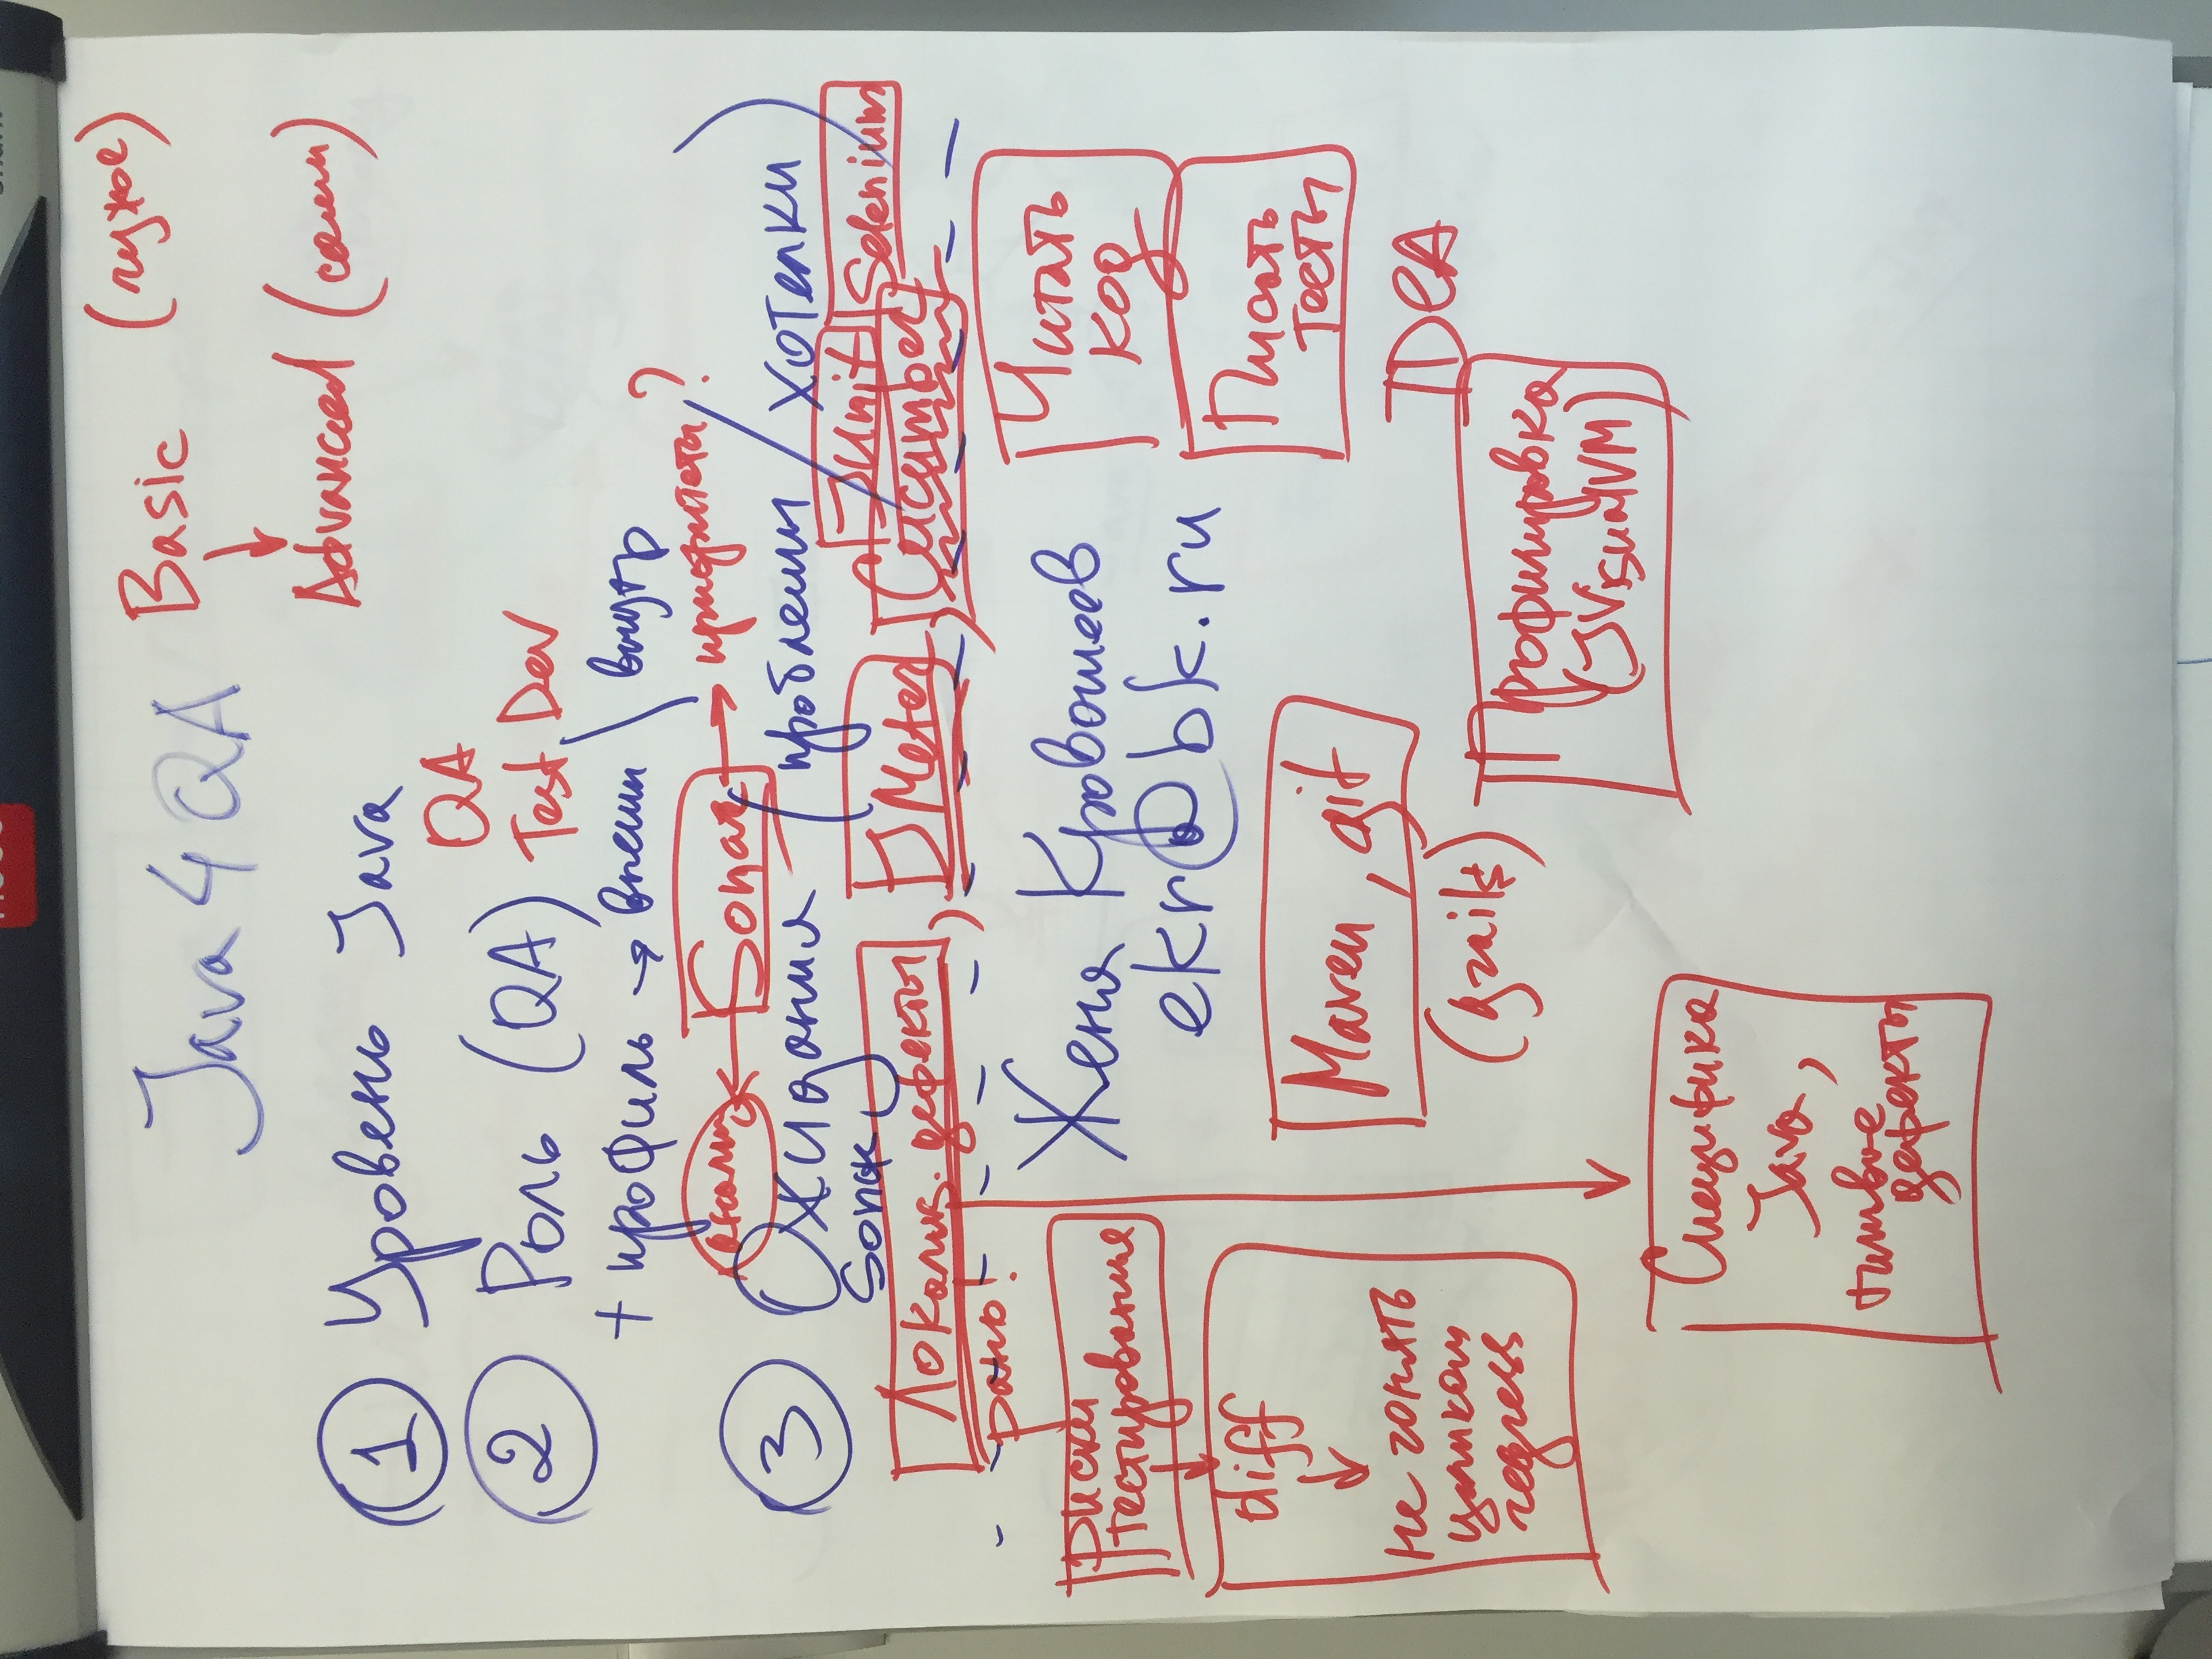 Java 4 QA
Basic (чужое)
Advanced (сами)
1 Уровень Java
2 Роль (QA)
QA
Test Dev
+ профиль → внешн \ внутр
анализ ← Sonar → приоритеты ?
3 Ожидания (проблемы / хотелки)
Sonar
Локализ. дефекты, JMeter, Cucumber
JUnit
Selenium
рано!
риски
тестирования
diff
не гонять
целиком
regress
Женя Кривошеев
ekr@bk.ru
Читать
код
Писать
тесты
Maven, git
(grails)
IDEA
Профилировка
(JVisualVM)
Специфика
Java,
типовые
дефекты